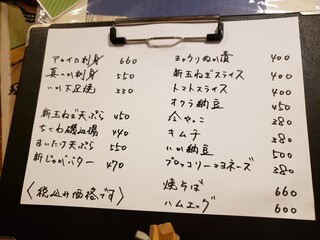 アカイカ刺身 660
真いか刺身 550
いか下足焼 330
新玉ねぎ天ぷら 450
ちくわ磯辺揚 440
まいたけ天ぷら 550
新じゃがバター 470
〈税込み価格です〉
キュウリぬか漬 400
新玉ねぎスライス 400
トマトスライス 400
オクラ納豆 450
冷やっこ 380
キムチ 380
いか納豆 500
ブロッコリーマヨネーズ 380
焼そば 660
ハムエッグ 600